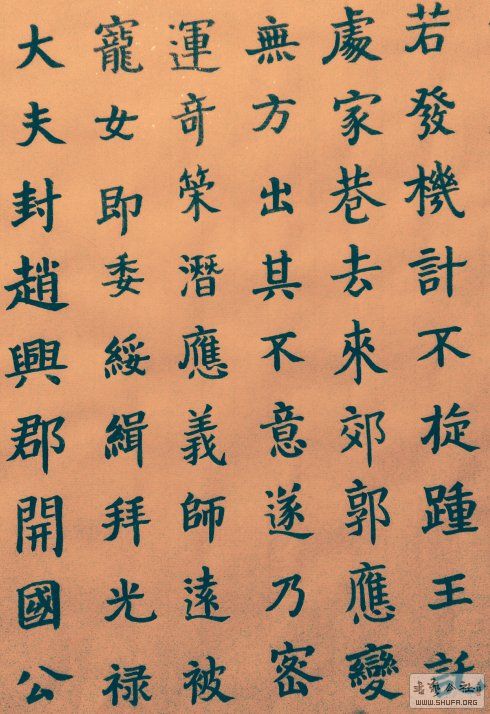 若發機計不旋踵王託
處家巷去來郊郭應變
無方出其不意遂乃密
運奇策潛應義師遠被
寵女即委綏緝拜光禄
大夫封趙興郡開國公
WWW.SHUFA.ORG